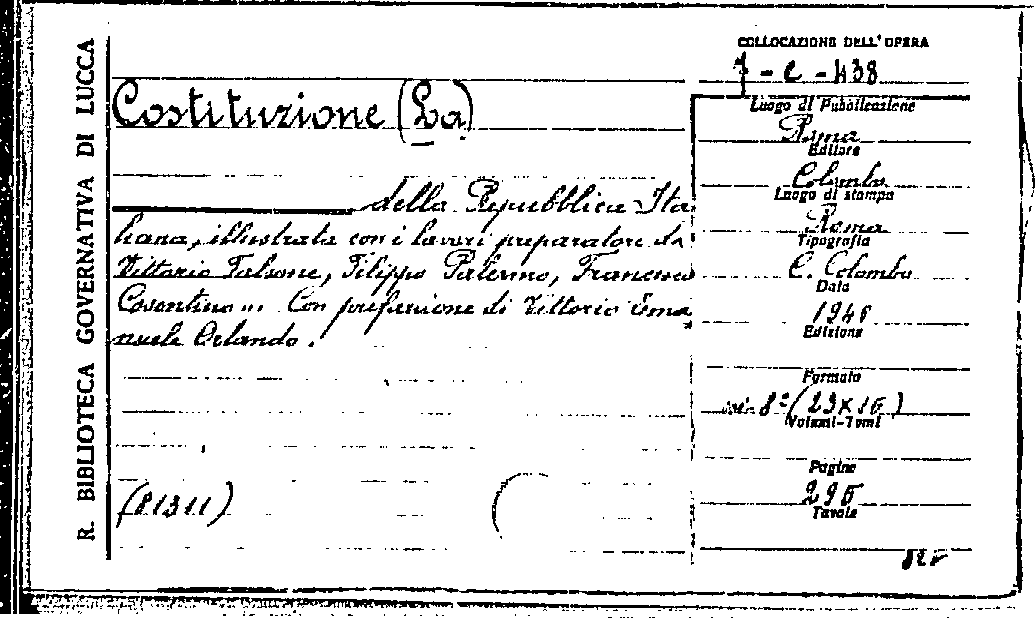 R. BIBLIOTECA GOVERNATIVA DI LUCCA
COLLOCAZIONE DELL'OPERA
7 - e - 438
Costituzione (La)
della Repubblica Ita
liana, illustrata con i lavori preparatori da
Vittorio Falsone, Filippo Palermo, Francesco
Cosentino... Con prefazione di Vittorio Ema
nuele Orlando.
(81311)
Luogo di Pubblicazione
Roma
Editore
Colombo
Luogo di stampa
Roma
Tipografia
C. Colombo
Data
Edizione
Formato
in- 8º (23×16)
Volumi-Tomi
Pagine
Tavole